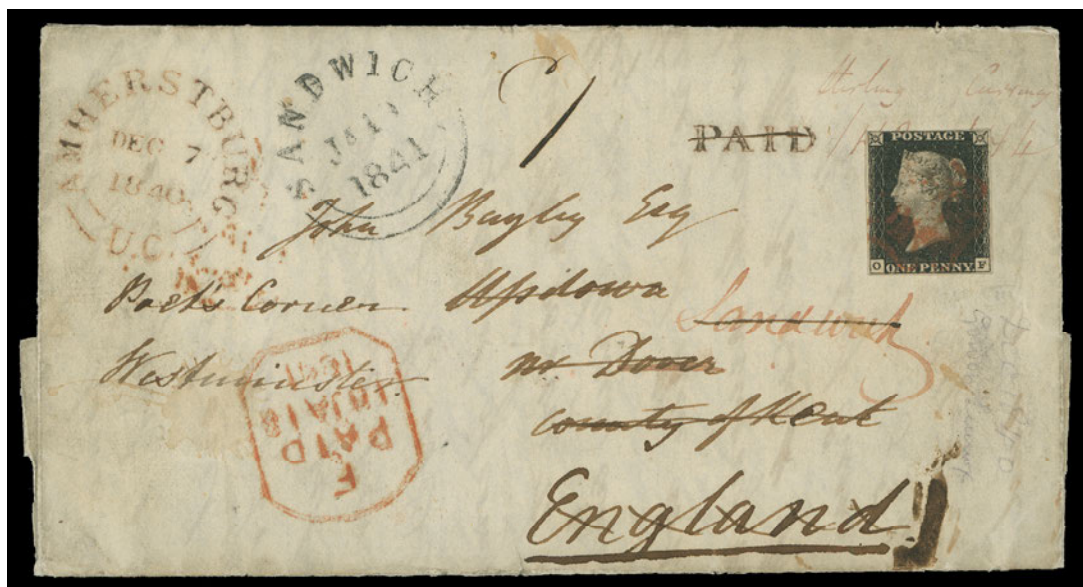 AMHERSTBURG
DEC 7
1840
U.C.
SANDWICH
JA
1841
PAID
Sterling Currency
POSTAGE
O ONE PENNY F
John Bayley Esq
Poet's Corner Updown
Sandwich
Westminster nr Dover
county of Kent
England
F
PAID
18JA18
1841